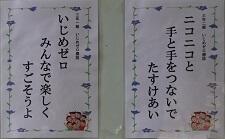 ニコニコと
手と手をつないで
たすけあい
いじめゼロ
みんなで楽しく
すごそうよ